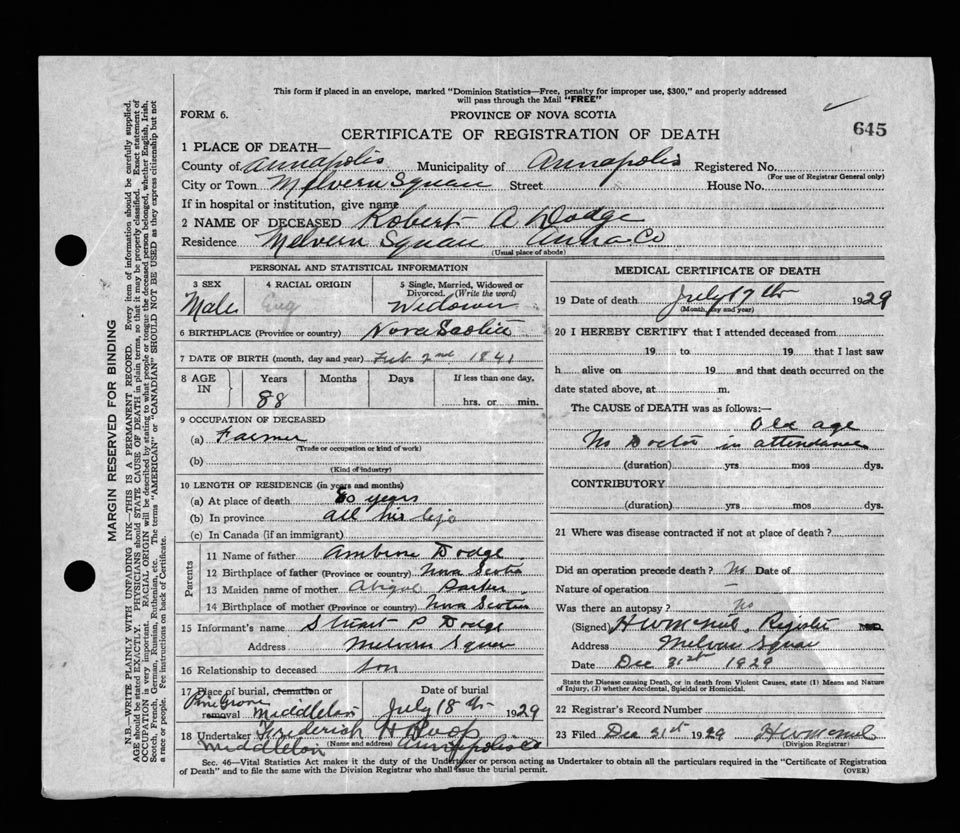 This form if placed in an envelope, marked "Dominion Statistics—Free, penalty for improper use, $300," and properly addressed
will pass through the Mail "FREE"
FORM 6.
PROVINCE OF NOVA SCOTIA
645
CERTIFICATE OF REGISTRATION OF DEATH
1 PLACE OF DEATH—
County of Annapolis Municipality of Annapolis Registered No.
(For use of Registrar General only)
City or Town Melvern Square Street House No.
If in hospital or institution, give name
2 NAME OF DECEASED Robert A Dodge
Residence Melvern Square Anna Co
(Usual place of abode)
PERSONAL AND STATISTICAL INFORMATION
3 SEX 4 RACIAL ORIGIN 5 Single, Married, Widowed or
Divorced. (Write the word)
Male Eng Widower
6 BIRTHPLACE (Province or country) Nova Scotia
7 DATE OF BIRTH (month, day and year) Feb 2nd 1841
8 AGE IN Years Months Days If less than one day,
88 hrs. or min.
9 OCCUPATION OF DECEASED
(a) Farmer
(Trade or occupation or kind of work)
(b)
(Kind of industry)
10 LENGTH OF RESIDENCE (in years and months)
(a) At place of death 80 years
(b) In province all his life
(c) In Canada (if an immigrant)
Parents
11 Name of father Dodge
12 Birthplace of father (Province or country) Nova Scotia
13 Maiden name of mother Parker
14 Birthplace of mother (Province or country) Nova Scotia
15 Informant's name Stuart P Dodge
Address Melvern Square
16 Relationship to deceased son
17 Place of burial, cremation or Date of burial
Pine Grove
removal Middleton July 18th 1929
18 Undertaker Frederick H Roop
(Name and address)
Middleton Annapolis Co
MEDICAL CERTIFICATE OF DEATH
19 Date of death July 17th 1929
(Month, day and year)
20 I HEREBY CERTIFY that I attended deceased from
19 to 19 that I last saw
h alive on 19 and that death occurred on the
date stated above, at m.
The CAUSE of DEATH was as follows:—
Old age
No Doctor in attendance
(duration) yrs mos dys.
CONTRIBUTORY
(duration) yrs mos dys.
21 Where was disease contracted if not at place of death?
Did an operation precede death? No Date of
Nature of operation —
Was there an autopsy? No
(Signed) H W McNeil, Register
Address Melvern Square
Date Dec 31st 1929
State the Disease causing Death, or in death from Violent Causes, state (1) Means and Nature
of Injury, (2) whether Accidental, Suicidal or Homicidal.
22 Registrar's Record Number
23 Filed Dec 31st 1929 H W McNeil
(Division Registrar)
Sec. 46—Vital Statistics Act makes it the duty of the Undertaker or person acting as Undertaker to obtain all the particulars required in the "Certificate of Registration
of Death" and to file the same with the Division Registrar who shall issue the burial permit.
(OVER)
MARGIN RESERVED FOR BINDING
N.B.—WRITE PLAINLY WITH UNFADING INK—THIS IS A PERMANENT RECORD. Every item of information should be carefully supplied.
AGE should be stated EXACTLY. PHYSICIANS should STATE CAUSE OF DEATH in plain terms, so that it may be properly classified. Exact statement of
OCCUPATION is very important. RACIAL ORIGIN will be described by stating to what people or tongue the deceased person belonged, whether English, Irish,
Scotch, French, German, Russian, Ruthenian, etc. The terms "AMERICAN" or "CANADIAN" SHOULD NOT BE USED as they express citizenship but not
a race or people. Fee instructions on back of Certificate.